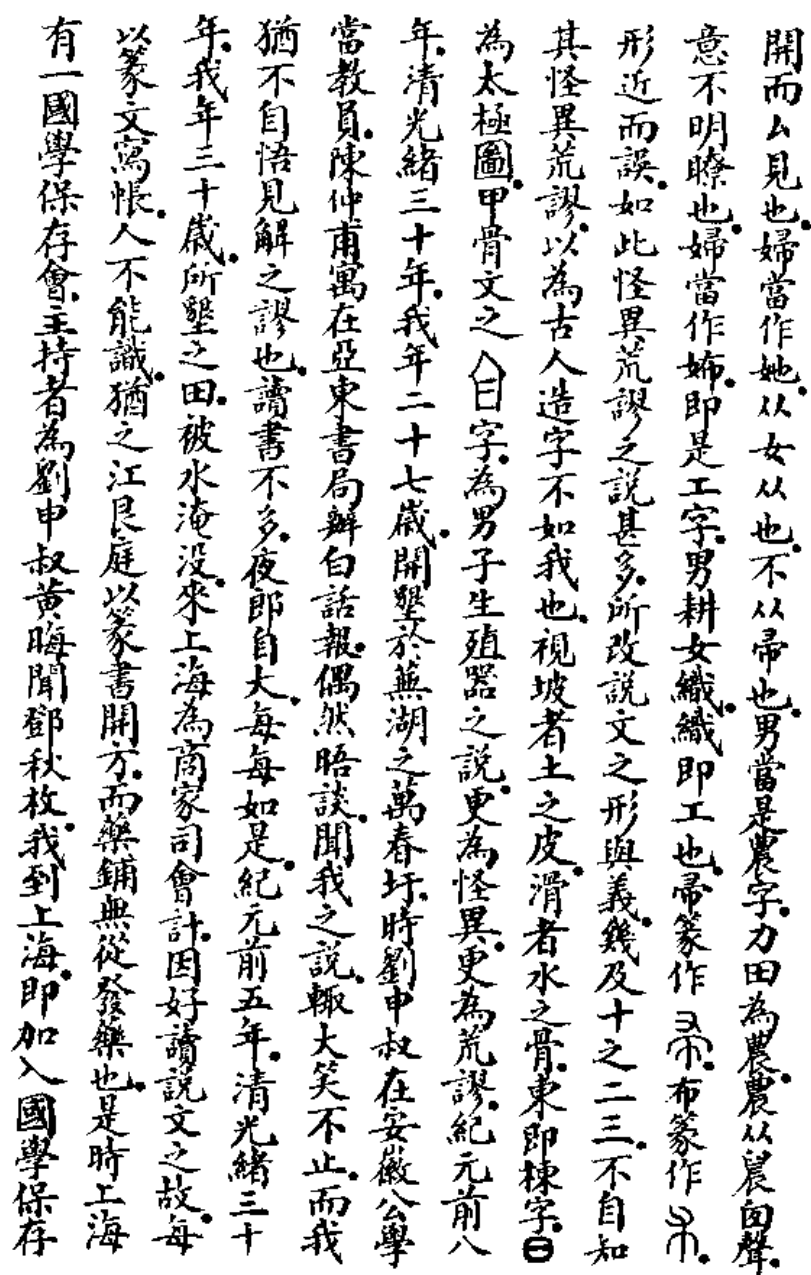 開而厶見也.婦當作她.从女从也.不从帚也.男當是農字.力田為農.農从䢅囪聲.
意不明瞭也.婦當作㚴.即是工字.男耕女織.織即工也.帚篆作.布篆作.
形近而誤.如此怪異荒謬之說甚多.所改說文之形與義.幾及十之二三.不自知
其怪異荒謬.以為古人造字不如我也.視坡者土之皮.滑者水之骨.東即棟字.
為太極圖.甲骨文之字.為男子生殖器之說.更為怪異.更為荒謬.紀元前八
年.清光緒三十年.我年二十七歲.開墾於蕪湖之萬春圩.時劉申叔在安徽公學
當教員.陳仲甫寓在亞東書局辦白話報.偶然晤談.聞我之說.輒大笑不止.而我
猶不自悟見解之謬也.讀書不多.夜郎自大.每每如是.紀元前五年.清光緒三十
年.我年三十歲.所墾之田.被水淹没.來上海為商家司會計.因好讀說文之故.每
以篆文寫帳.人不能識.猶之江艮庭以篆書開方.而藥鋪無從發藥也.是時上海
有一國學保存會.主持者為劉申叔黃晦聞鄧秋枚.我到上海.即加入國學保存